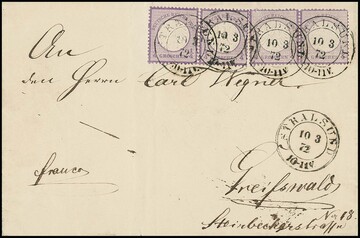 STRALSUND
10 3
72
10-11V.
STRALSUND
10 3
72
10-11V.
An
den Herrn Carl Wegner.
STRALSUND
10 3
72
10-11V
franco
Greifswald
Steinbeckerstrasse
No 13.